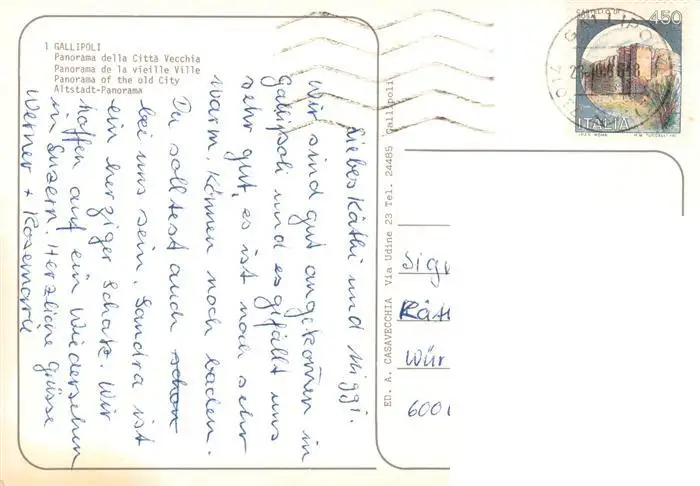 1 GALLIPOLI
Panorama della Città Vecchia
Panorama de la vieille Ville
Panorama of the old City
Altstadt-Panorama
Liebes Käthi und Miggi.
Wir sind gut angekom̄en in
Gallipoli und es gefällt uns
sehr gut, es ist noch sehr
warm. Können noch baden.
Du solltest auch schon
bei uns sein. Sandra ist
ein herziger Schatz. Wir
hoffen auf ein Wiedersehen
in Luzern. Herzliche Grüsse
Werner + Rosemarie
ED. A. CASAVECCHIA Via Udine 23 Tel. 24485 Gallipoli
CASTELLO DI
450
ITALIA
I.P.Z.S. ROMA
GALLIPOLI
Sig
Käth
Wür
600